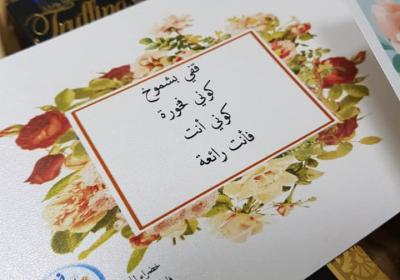 Truffino
قفي بشموخ
كوني فخورة
كوني أنت
فأنت رائعة